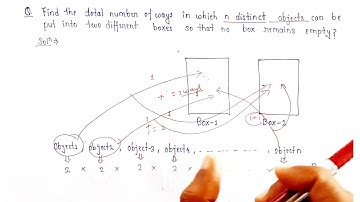 Q. Find the total number of ways in which n distinct objects can be
put into two different boxes so that no box remains empty?
Solⁿ→
1
+ = 2 ways
1
1
+ = 2
1+
Box-1
Box-2
object1, object2, object-3, object4, ............, object n
2 × 2 × 2 × 2 × ×